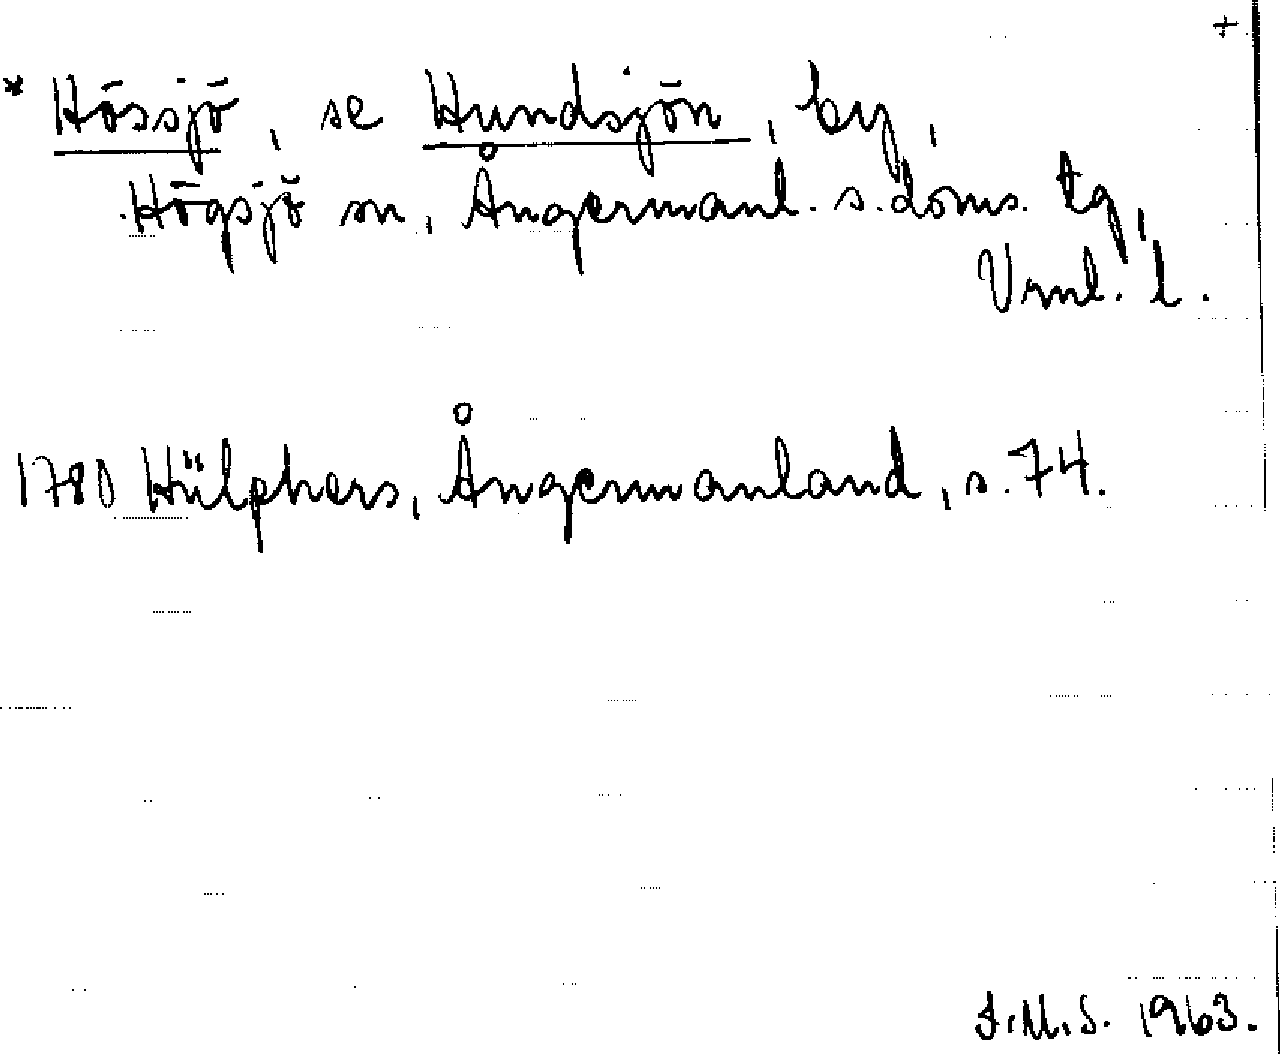 +
* Hössjö, se Hundsjön, by,
Högsjö sn, Ångermanl. s. doms. tg,
Vrnl. l.
1780 Hülphers, Ångermanland, s. 74.
1963.